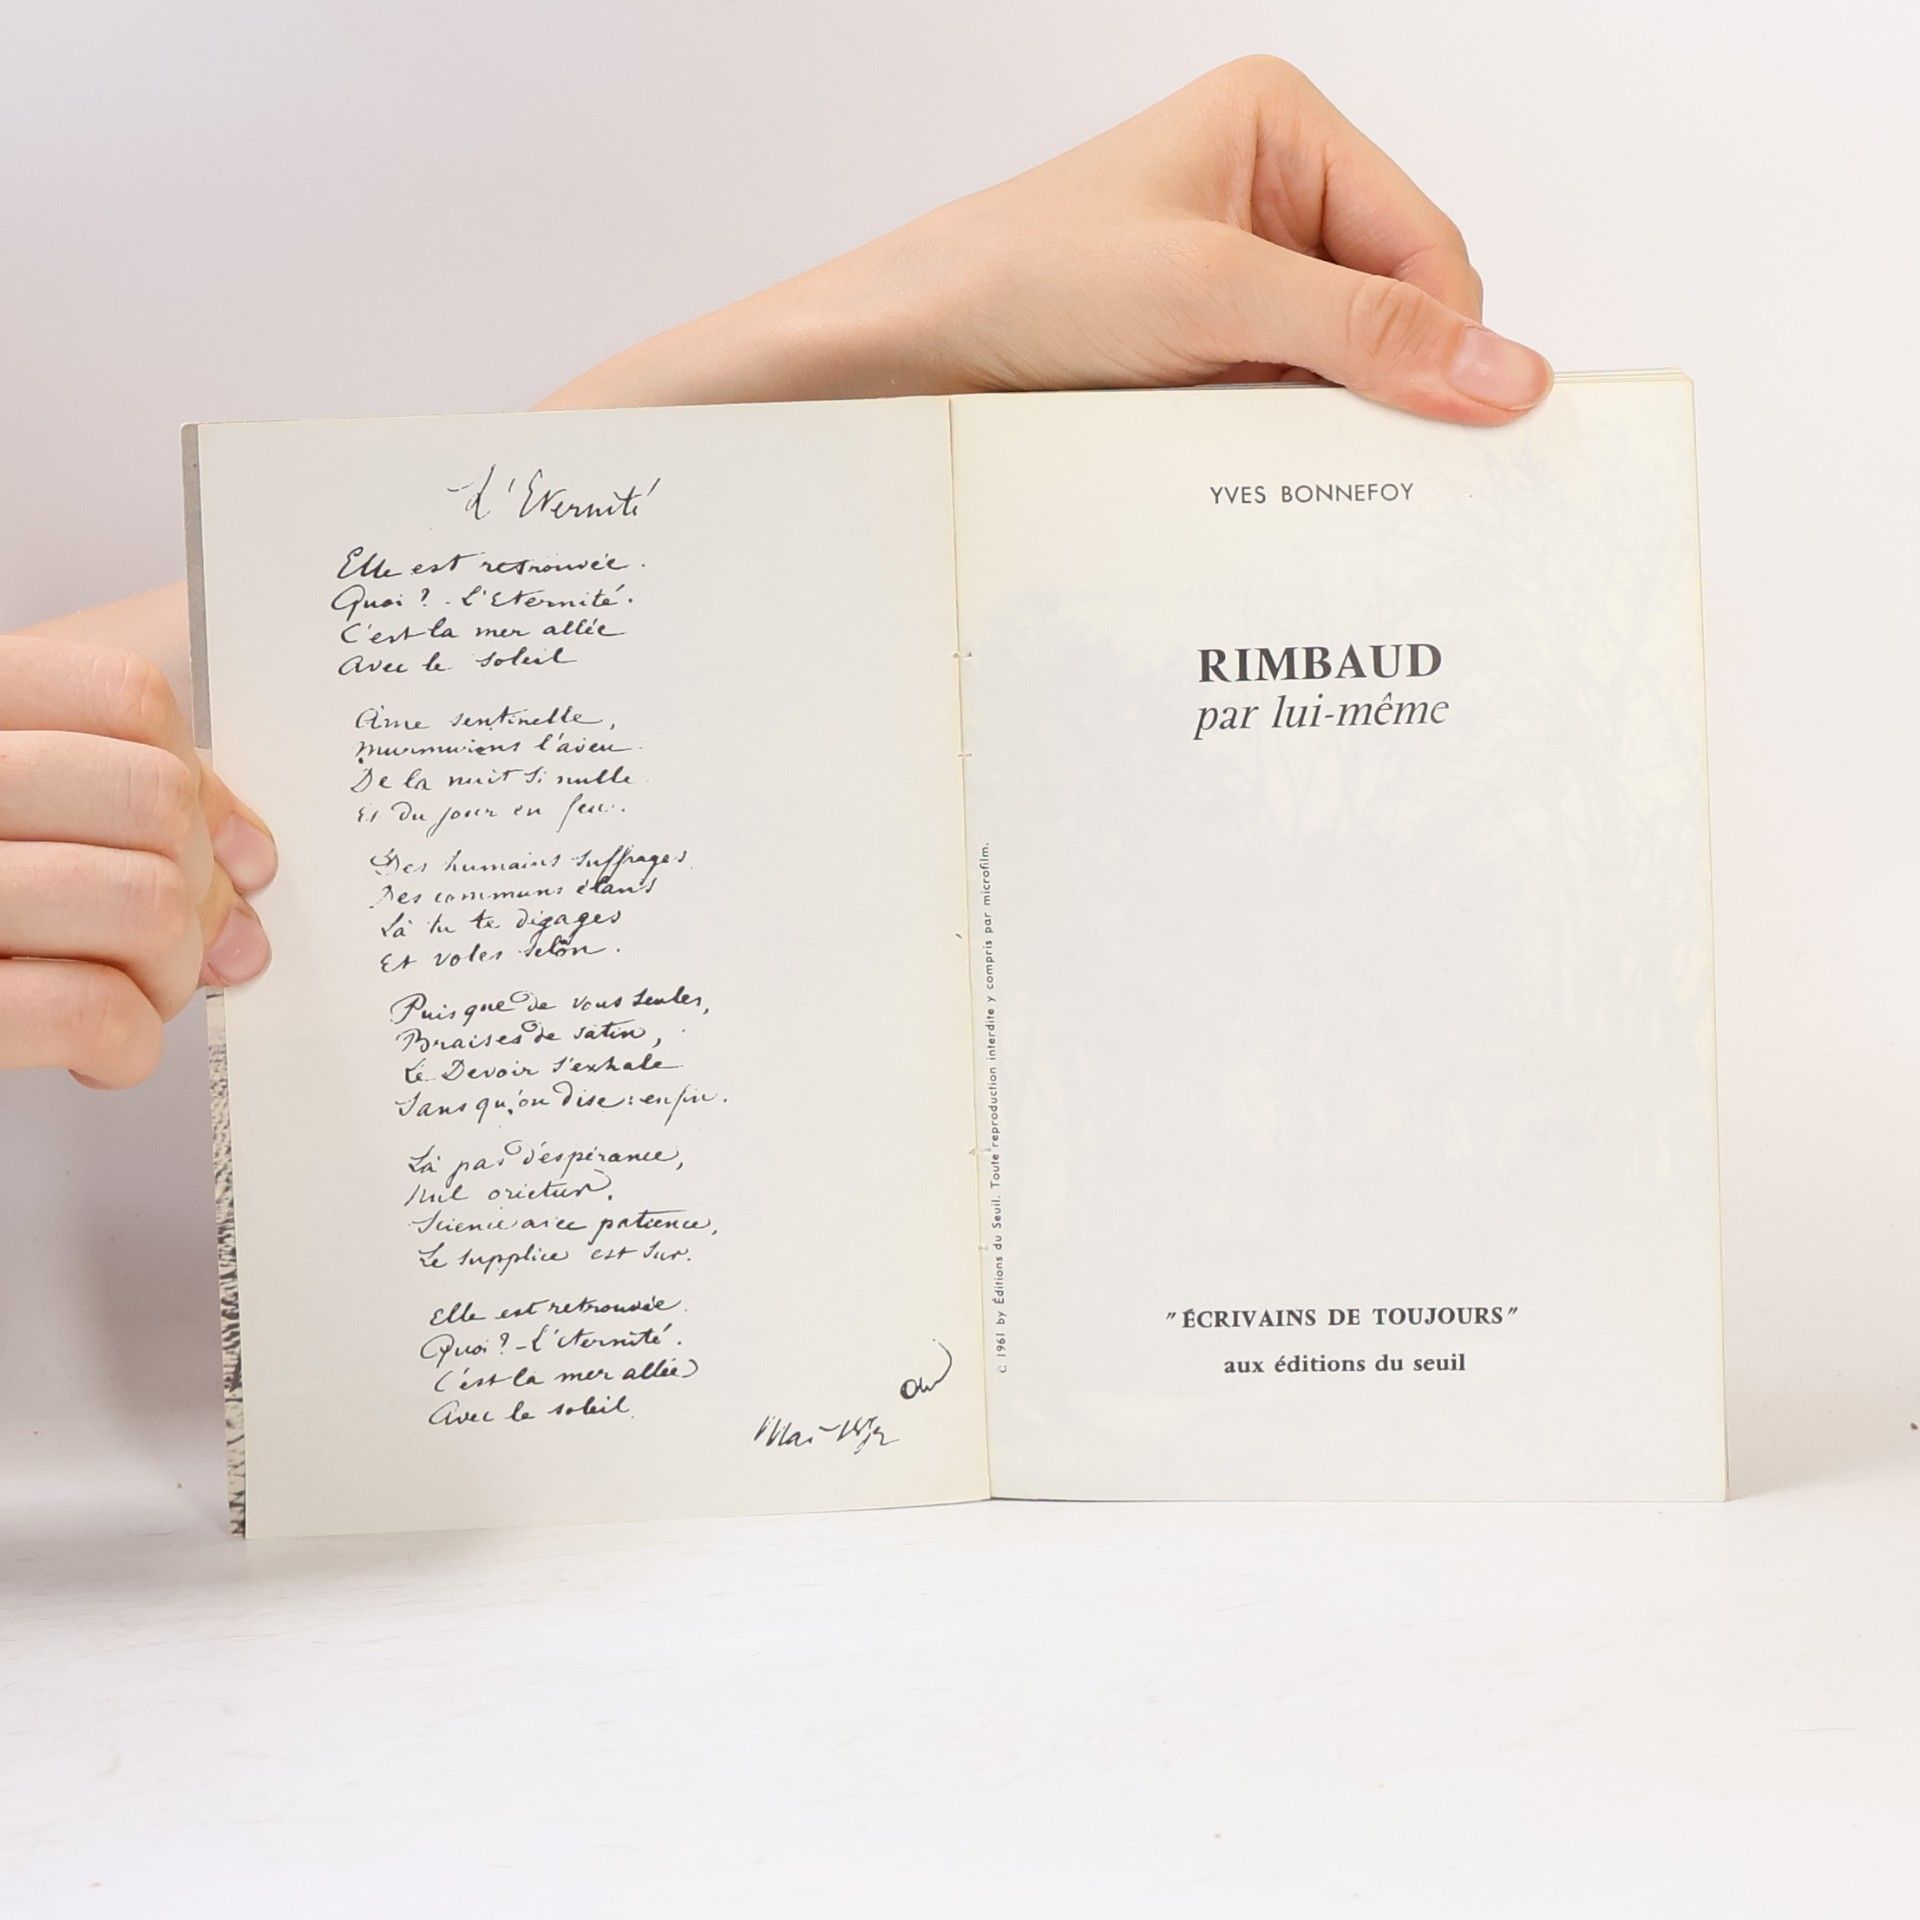 L'Eternité
Elle est retrouvée.
Quoi ? - L'Eternité.
C'est la mer allée
Avec le soleil
Âme sentinelle,
Murmurons l'aveu
De la nuit si nulle
Et du jour en feu.
Des humains suffrages
Des communs élans
Là tu te dégages
Et voles selon.
Puisque de vous seules,
Braises de satin,
Le Devoir s'exhale
Sans qu'on dise : enfin.
Là pas d'espérance,
Nul orietur.
Science avec patience,
Le supplice est sur.
Elle est retrouvée.
Quoi ? - L'Eternité.
C'est la mer allée
Avec le soleil.
Mai
YVES BONNEFOY
RIMBAUD
par lui-même
"ÉCRIVAINS DE TOUJOURS"
aux éditions du seuil
© 1961 by Éditions du Seuil. Toute reproduction interdite y compris par microfilm.